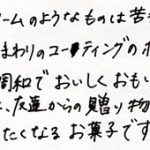 ームのようなものは苦
まわりのコーティングのホ
調和でおいしくおもい
、友達からの贈り物
たくなるお菓子です